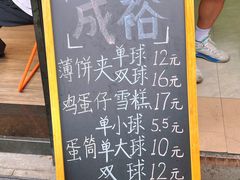 成裕
薄饼夹单球12元
双球16元
鸡蛋仔雪糕17元
单小球5.5元
蛋筒单大球10元
双球12元